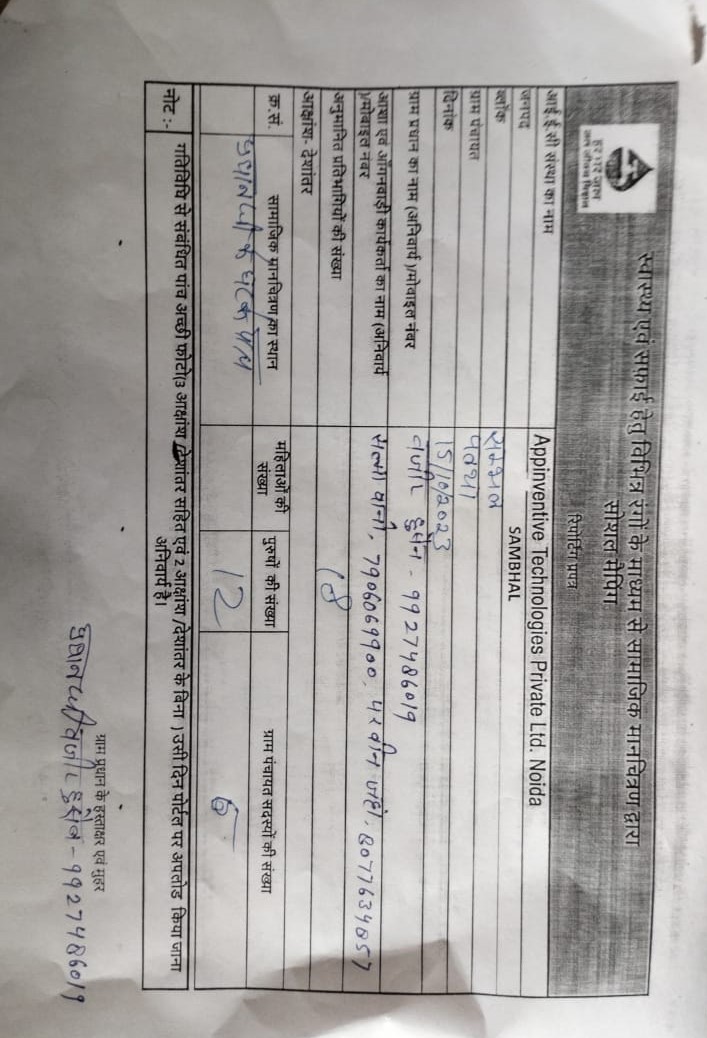 हर घर जल
जल जीवन मिशन
स्वास्थ्य एवं सफाई हेतु विभिन्न रंगो के माध्यम से सामाजिक मानचित्रण द्वारा
सोशल मैपिंग
रिपोर्टिंग प्रपत्र
आई.ई.सी संस्था का नाम Appinventive Technologies Private Ltd. Noida
जनपद SAMBHAL
ब्लॉक सम्भल
ग्राम पंचायत
दिनांक 15/6/2023
ग्राम प्रधान का नाम (अनिवार्य )/मोबाइल नंबर हुसैन - 9927486019
आशा एवं आँगनवाड़ी कार्यकर्ता का नाम (अनिवार्य 7906069900, परवीन जहाँ, 8077634857
)/मोबाइल नंबर
अनुमानित प्रतिभागियों की संख्या 18
आक्षांश- देशांतर
क्र.सं. सामाजिक मानचित्रण का स्थान महिलाओं की संख्या पुरुषों की संख्या ग्राम पंचायत सदस्यों की संख्या
प्रधान जी के 12 6
नोट :- गतिविधि से संबंधित पांच अच्छी फोटो3 आक्षांश /देशांतर सहित एवं 2 आक्षांश /देशांतर के बिना ) उसी दिन पोर्टल पर अपलोड किया जाना
अनिवार्य है।
ग्राम प्रधान के हस्ताक्षर एवं मुहर
प्रधान जी हुसैन - 9927486019